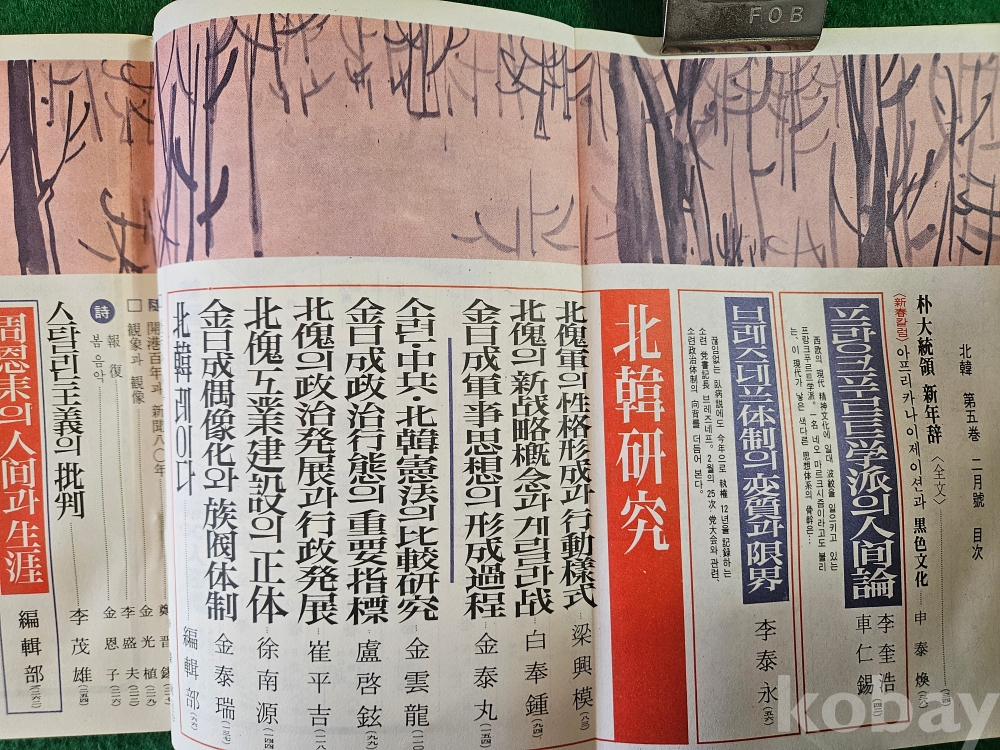 FOB
北韓 第五巻 二月號 目次
朴大統領 新年辞 〈全文〉
〈新春칼럼〉 아프리카나이제이션과 黒色文化 申泰煥
프랑크푸르트学派의 人间論 李奎浩 車仁錫
西欧의 現代 精神文化에 일대 波紋을 일으키고 있는
프랑크푸르트学派。一名 네오 마르크시즘이라고도 불리
는、이 現代가 낳은 색다른 思想体系의 骨幹은…
브레즈네프体制의 変質과 限界 李泰永 (五六)
끊임없는 臥病説에도 今年으로 執権 12년을 記録하는
소련 党書記長 브레즈네프。2월의 25次 党大会와 관련、
소련政治体制의 向背를 더듬어 본다。
北韓研究
北傀軍의 性格形成과 行動樣式 梁興模 (八三)
北傀의 新战略概念과 게릴라战 白奉鍾 (九四)
金日成軍事思想의 形成過程 金泰丸 (一五四)
소련·中共·北韓憲法의 比較研究 金雲龍
金日成政治行態의 重要指標 盧啓鉉 (九九)
北傀의 政治発展과 行政発展 崔平吉
北傀工業建設의 正体 徐南源 (一四四)
金日成偶像化와 族閥体制 金泰瑞 (一三七)
北韓 编辑部 (六六)
開港百年과 新聞八〇年
□ 観象과 観像 金光植
詩 報復 李盛夫
봄 음악 金恩子
스탈린主義의 批判 李茂雄 (二五四)
周恩来의 人间과 生涯 編輯部
kobay